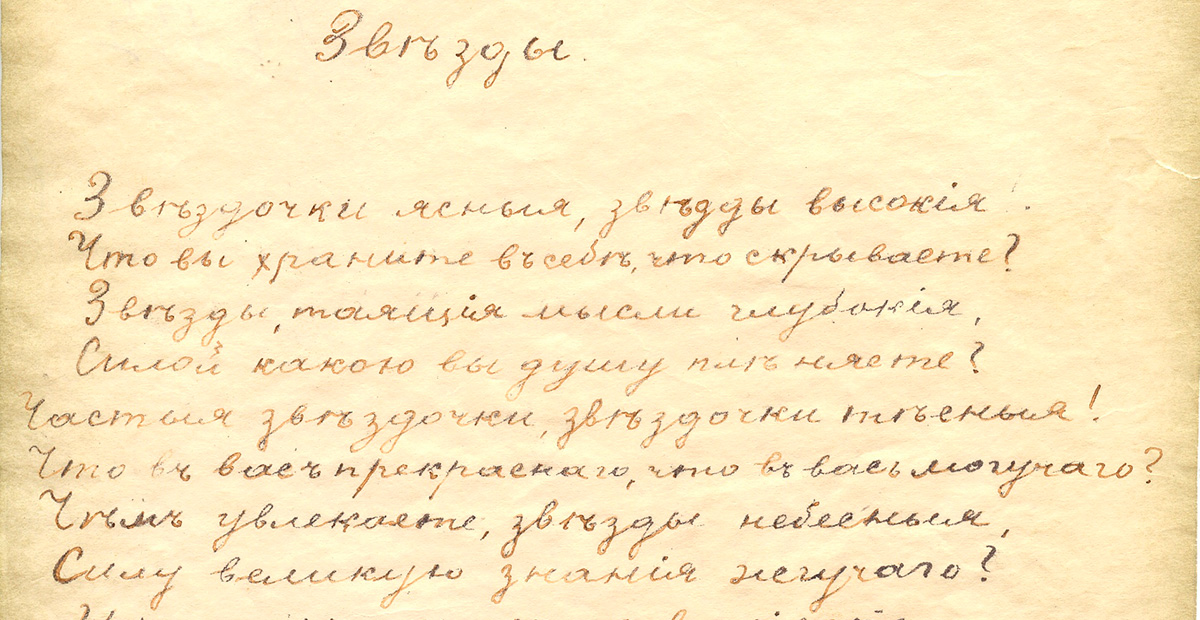 Звѣзды.
Звѣздочки ясныя, звѣзды высокія!
Что вы храните въ себѣ, что скрываете?
Звѣзды, таящія мысли глубокія,
Силой какою вы душу плѣняете?
Частыя звѣздочки, звѣздочки тѣсныя!
Что въ васъ прекраснаго, что въ васъ могучаго?
Чѣмъ увлекаете, звѣзды небесныя,
Силу великую знанія жгучаго?